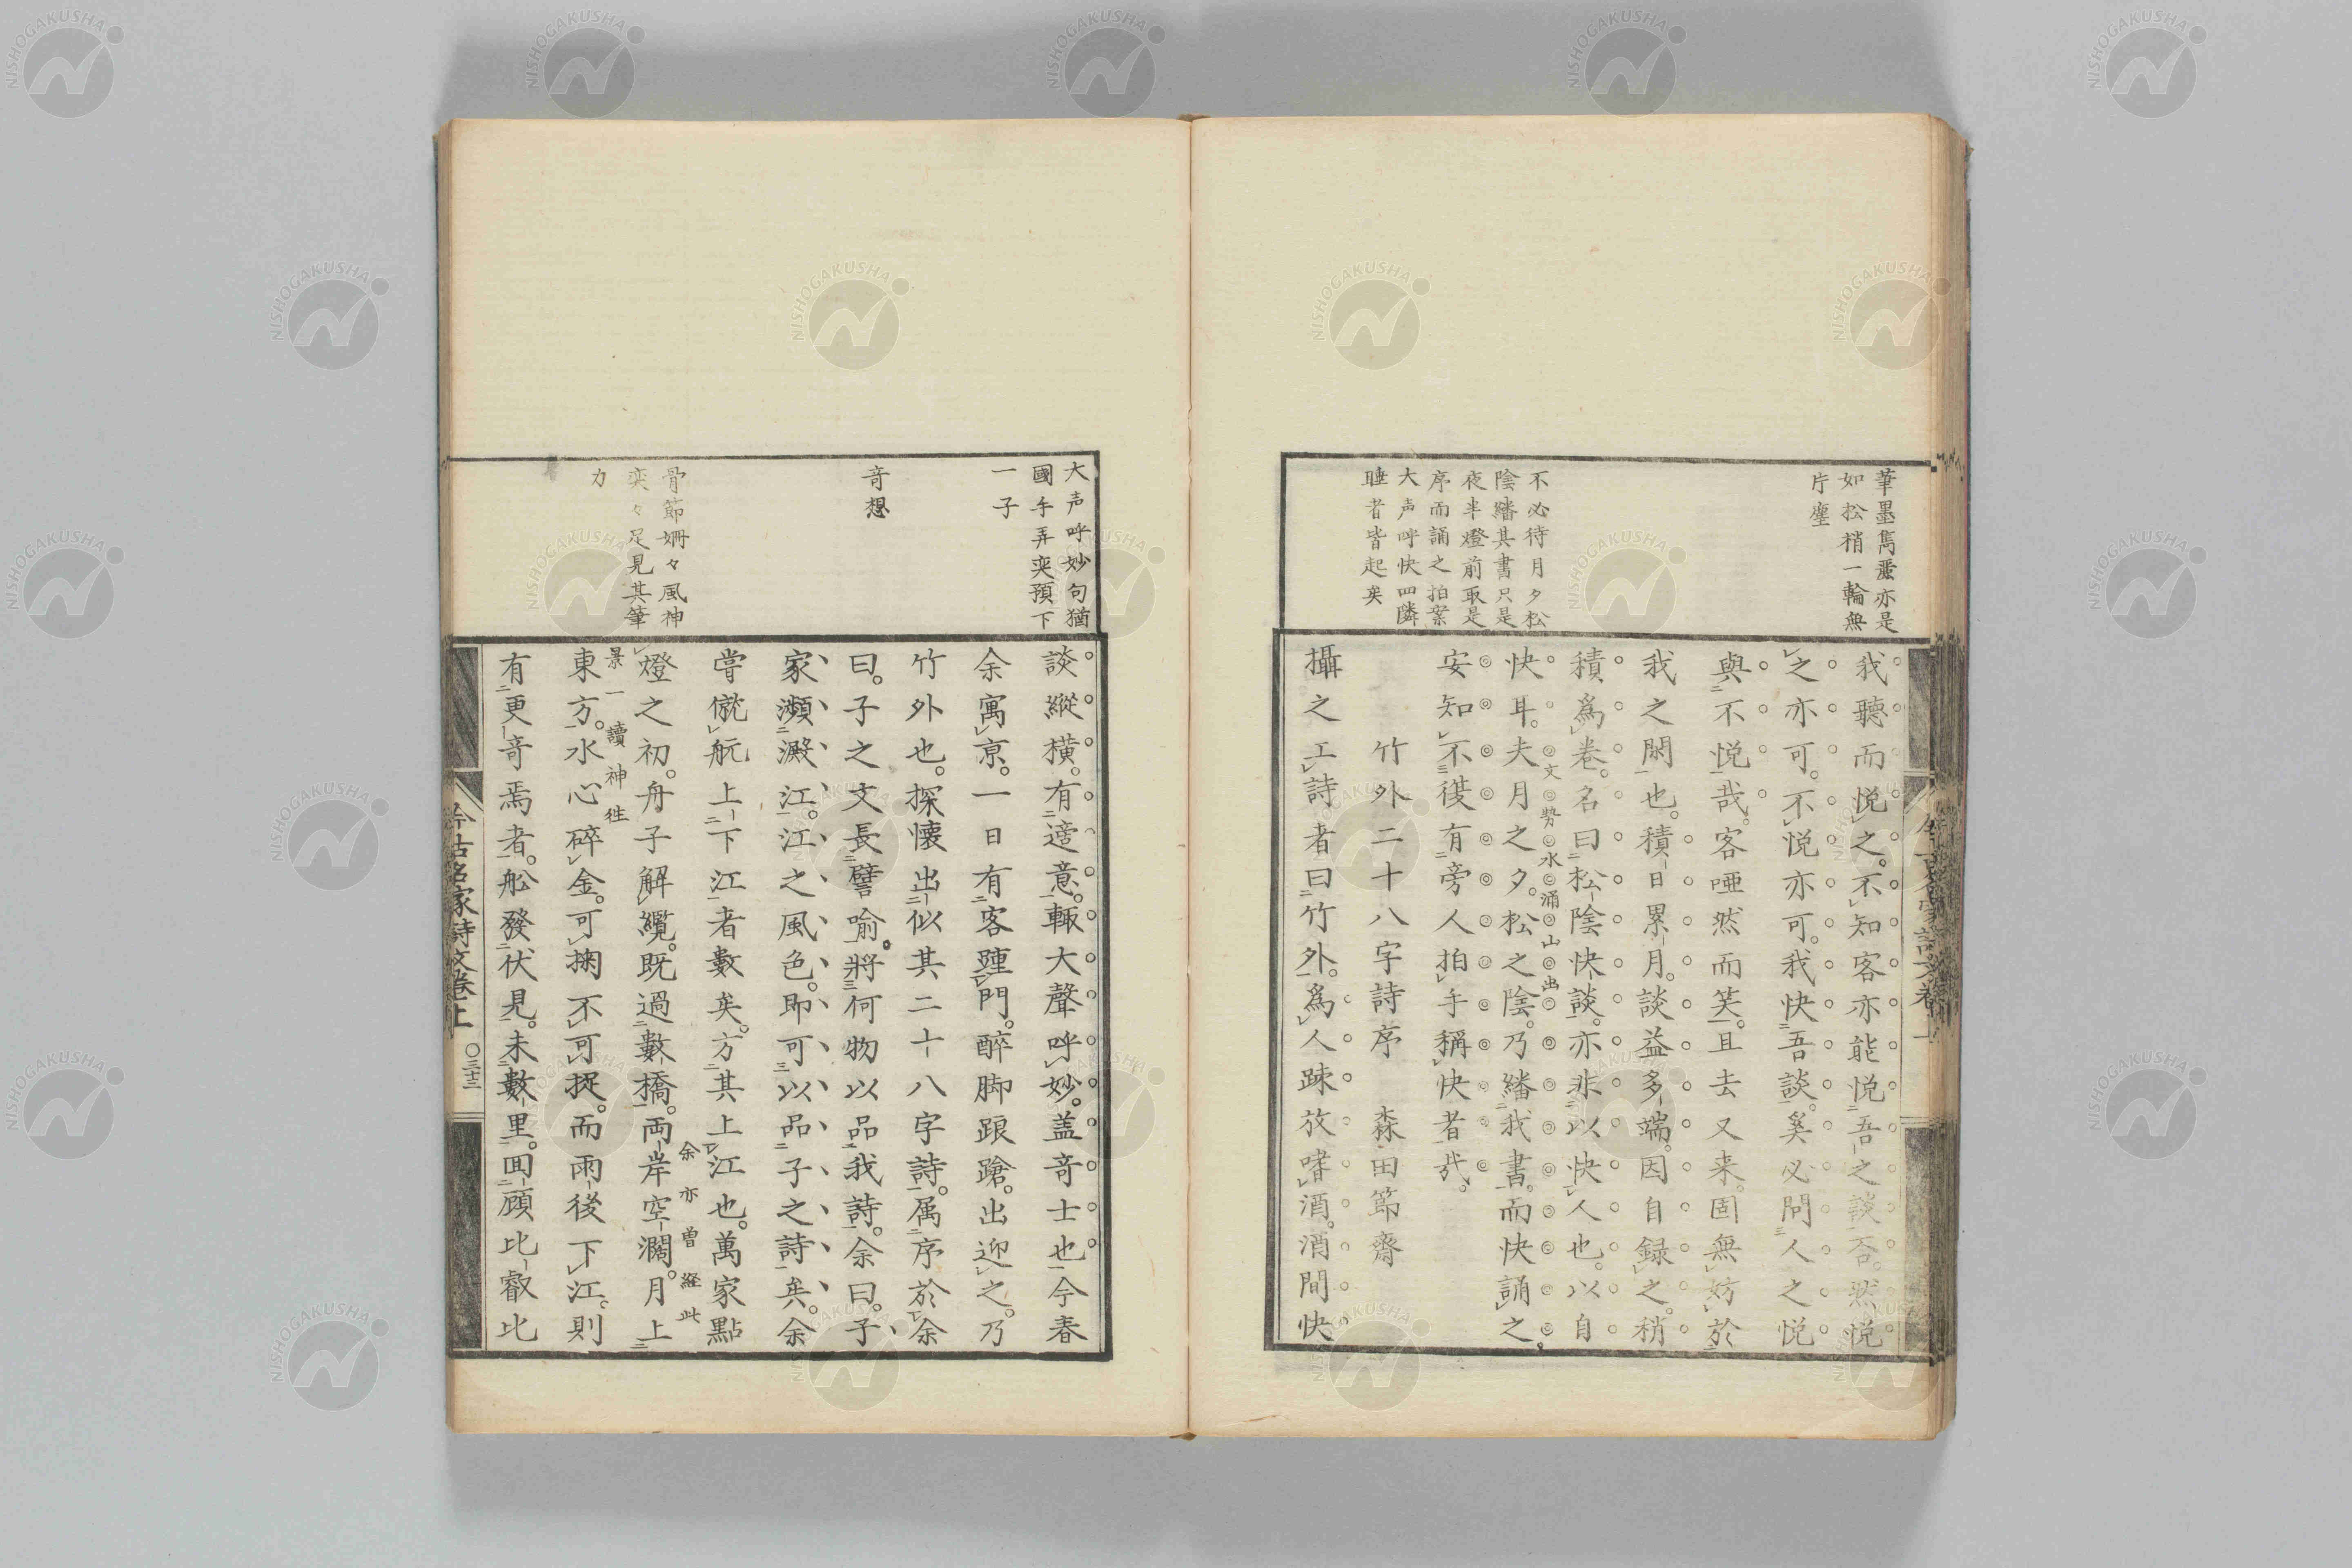 華墨雋㶚亦是
如松梢一輪無
片塵
不必待月夕松
陰繙其書只是
夜半燈前取是
序而誦之拍案
大声呼快四隣
睡者皆起矣
我聽而悦之。不知客亦能悦吾之談否。然悦
之亦可。不悦亦可。我快吾談。奚必問人之悦
與不悦哉。客啞然而笑。且去又来。固無妨於
我之閑也。積日累月。談益多端。因自録之。稍
積爲卷。名曰松陰快談。亦非以快人也。以自
快耳。夫月之夕。松之陰。乃繙我書。而快誦之。
文勢水涌山出
安知不後有旁人拍手稱快者哉。
竹外二十八字詩序 森田節齋
攝之工詩者曰竹外。爲人踈放嗜酒。酒間快
大声呼妙句猶
國手弄奕預下
一子
奇想
骨節姍々風神
奕々足見其筆
力
談縱橫。有適意。輙大聲呼妙。盖奇士也。今春
余寓京。一日有客踵門。醉脚踉蹌。出迎之。乃
竹外也。探懷出似其二十八字詩。属序於余
曰。子之文長譬喻。將何物以品我詩。余曰。子
家瀕澱江。江之風色。即可以品子之詩矣。余
嘗僦舩上下江者數矣。方其上江也。萬家點
余亦曽経此
燈之初。舟子解纜。既過數橋。両岸空濶。月上
景一讀神徃
東方。水心碎金。可掬不可捉。而雨後下江。則
有更奇焉者。舩發伏見。未數里。回顧比叡比
今古名家詩文卷上 〇三十二
NISHOGAKUSHA